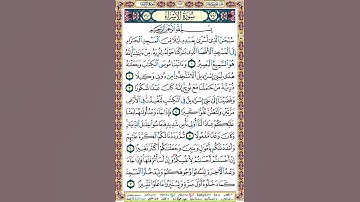 سُورَةُ الإِسْرَاءِ
بِسْمِ اللَّهِ الرَّحْمَٰنِ الرَّحِيمِ
سُبْحَٰنَ الَّذِي أَسْرَىٰ بِعَبْدِهِ لَيْلًا مِّنَ الْمَسْجِدِ الْحَرَامِ
إِلَى الْمَسْجِدِ الْأَقْصَا الَّذِي بَٰرَكْنَا حَوْلَهُ لِنُرِيَهُ مِنْ ءَايَٰتِنَا إِنَّهُ
هُوَ السَّمِيعُ الْبَصِيرُ ١ وَءَاتَيْنَا مُوسَى الْكِتَٰبَ وَجَعَلْنَٰهُ
هُدًى لِّبَنِي إِسْرَٰءِيلَ أَلَّا تَتَّخِذُوا مِن دُونِي وَكِيلًا ٢
ذُرِّيَّةَ مَنْ حَمَلْنَا مَعَ نُوحٍ إِنَّهُ كَانَ عَبْدًا شَكُورًا ٣
وَقَضَيْنَا إِلَىٰ بَنِي إِسْرَٰءِيلَ فِي الْكِتَٰبِ لَتُفْسِدُنَّ فِي الْأَرْضِ
مَرَّتَيْنِ وَلَتَعْلُنَّ عُلُوًّا كَبِيرًا ٤ فَإِذَا جَاءَ وَعْدُ أُولَىٰهُمَا
بَعَثْنَا عَلَيْكُمْ عِبَادًا لَّنَا أُولِي بَأْسٍ شَدِيدٍ فَجَاسُوا خِلَٰلَ الدِّيَارِ
وَكَانَ وَعْدًا مَّفْعُولًا ٥ ثُمَّ رَدَدْنَا لَكُمُ الْكَرَّةَ عَلَيْهِمْ
وَأَمْدَدْنَٰكُم بِأَمْوَٰلٍ وَبَنِينَ وَجَعَلْنَٰكُمْ أَكْثَرَ نَفِيرًا ٦
إِنْ أَحْسَنتُمْ أَحْسَنتُمْ لِأَنفُسِكُمْ وَإِنْ أَسَأْتُمْ فَلَهَا فَإِذَا جَاءَ
وَعْدُ الْءَاخِرَةِ لِيَسُـُٔوا وُجُوهَكُمْ وَلِيَدْخُلُوا الْمَسْجِدَ
كَمَا دَخَلُوهُ أَوَّلَ مَرَّةٍ وَلِيُتَبِّرُوا مَا عَلَوْا تَتْبِيرًا ٧